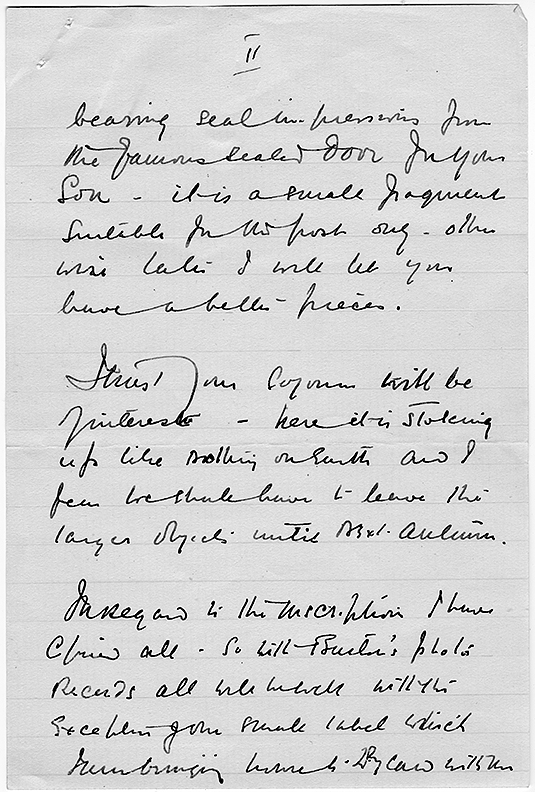 II
bearing seal impressions from
the famous sealed door for your
Son - it is a small fragment
suitable for the post only - other
wise later I will let you
have a better piece.
I trust your sojourn will be
of interest - here it is stoking
up like nothing on Earth and I
fear we shall have to leave the
larger objects until next Autumn.
In regard to the inscription I have
copied all - So with Burton's photo
Records all will be well with the
Exception of one small label which
I am bringing home to Dr. with me